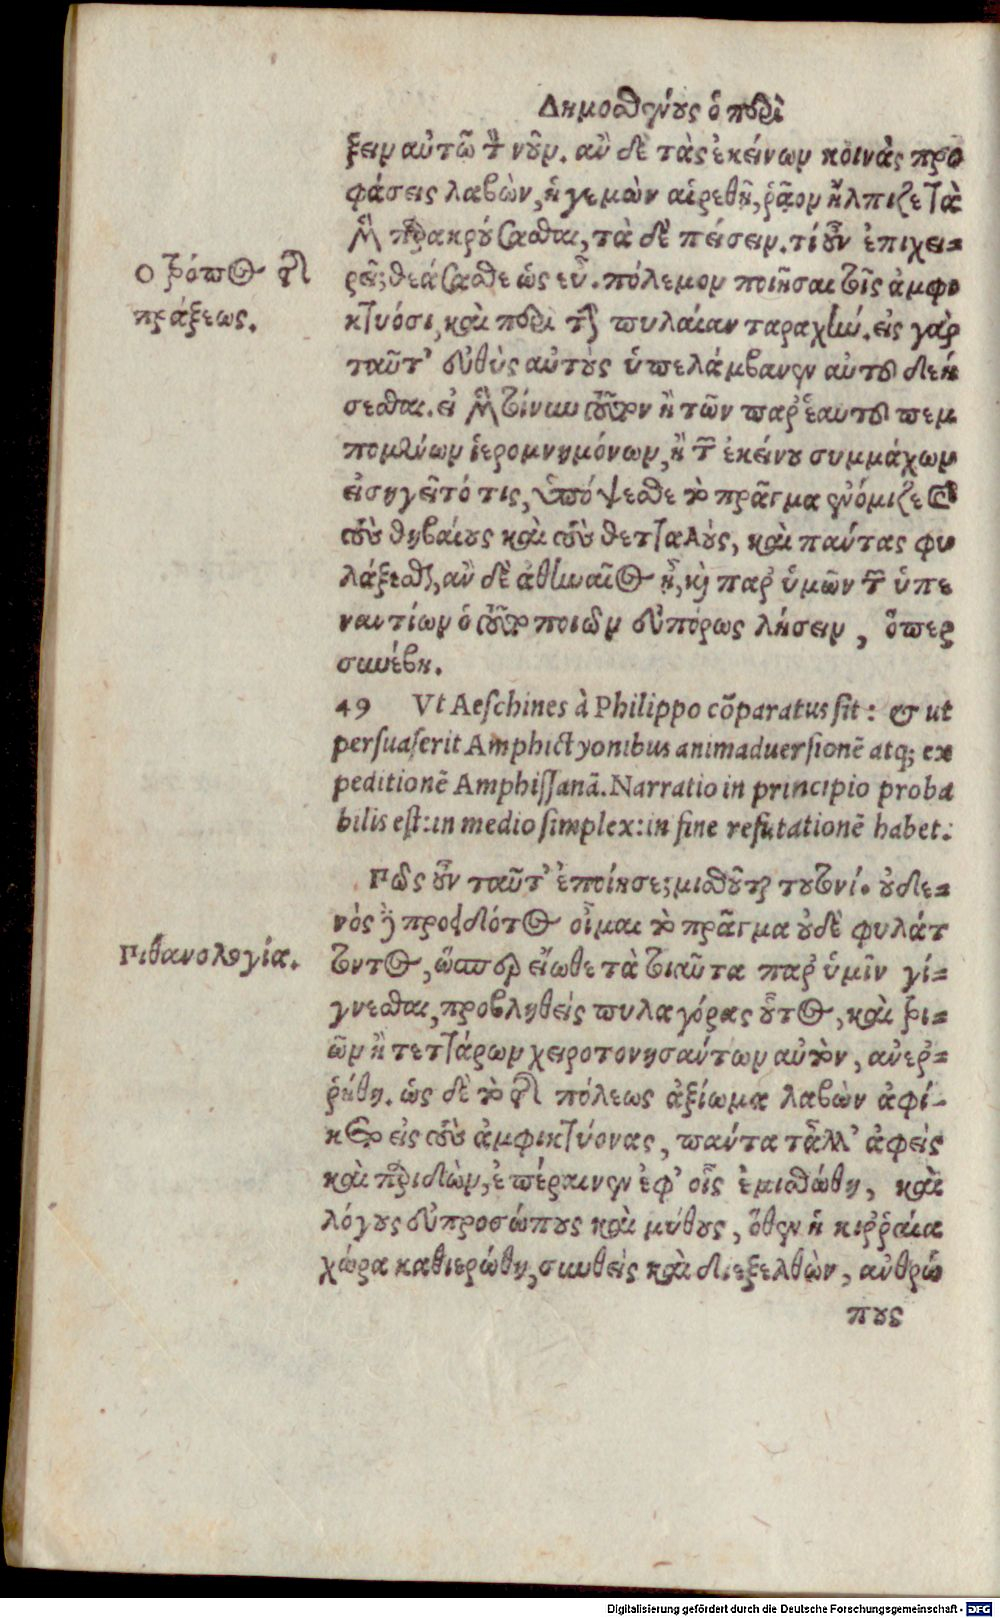 Δημοσθένους ὁ περὶ
ξειν αὐτῷ τὸν νοῦν. ἂν δὲ τὰς ἐκείνων κοινὰς προ
φάσεις λαβὼν, ἡγεμὼν αἱρεθῇ, ῥᾷον ἤλπιζε τὰ
μὲν παρακρούσασθαι, τὰ δὲ πείσειν. τί οὖν ἐπιχει-
ρεῖ; θεάσασθε ὡς εὖ. πόλεμον ποιῆσαι τοῖς ἀμφι
κτυόσι, καὶ περὶ τὴν πυλαίαν ταραχήν. εἰς γὰρ
ταῦτ' εὐθὺς αὐτοὺς ὑπελάμβανεν αὐτοῦ δεή
σεσθαι. εἰ μὲν τοίνυν τοῦτο ἢ τῶν παρ' ἑαυτοῦ πεμ
πομένων ἱερομνημόνων, ἢ τῶν ἐκείνου συμμάχων
εἰσηγεῖτό τις, ὑπόψεσθε τὸ πρᾶγμα ἐνόμιζε καὶ
τοὺς θηβαίους καὶ τοὺς θετταλοὺς, καὶ πάντας φυ
λάξεσθαι, ἂν δὲ ἀθηναῖος ᾖ, καὶ παρ' ὑμῶν τῶν ὑπε
ναντίων ὁ τοῦτο ποιῶν εὐπόρως λήσειν, ὅπερ
συνέβη.
Ο τρόπος τῆς
πράξεως.
49 Vt Aeſchines à Philippo cōparatus ſit: & ut
perſuaſerit Amphictyonibus animaduerſionē atq; ex
peditionē Amphiſſanā. Narratio in principio proba
bilis eſt: in medio ſimplex: in fine refutationē habet.
Πῶς οὖν ταῦτ' ἐποίησε; μισθοῦται τουτονί. οὐδε-
νὸς δὲ προειδότος οἶμαι τὸ πρᾶγμα οὐδὲ φυλάτ
τοντος, ὥσπερ εἴωθε τὰ τοιαῦτα παρ' ὑμῖν γί-
γνεσθαι, προβληθεὶς πυλαγόρας οὗτος, καὶ τρι-
ῶν ἢ τεττάρων χειροτονησάντων αὐτὸν, ἀνερ-
ῥήθη. ὡς δὲ τὸ τῆς πόλεως ἀξίωμα λαβὼν ἀφί-
κετο εἰς τοὺς ἀμφικτύονας, πάντα τἆλλ' ἀφεὶς
καὶ παριδὼν, ἐπέραινεν ἐφ' οἷς ἐμισθώθη, καὶ
λόγους εὐπροσώπους καὶ μύθους, ὅθεν ἡ κιῤῥαία
χώρα καθιερώθη, συνθεὶς καὶ διεξελθὼν, ἀνθρώ
πους
Πιθανολογία.
Digitalisierung gefördert durch die Deutsche Forschungsgemeinschaft - DFG